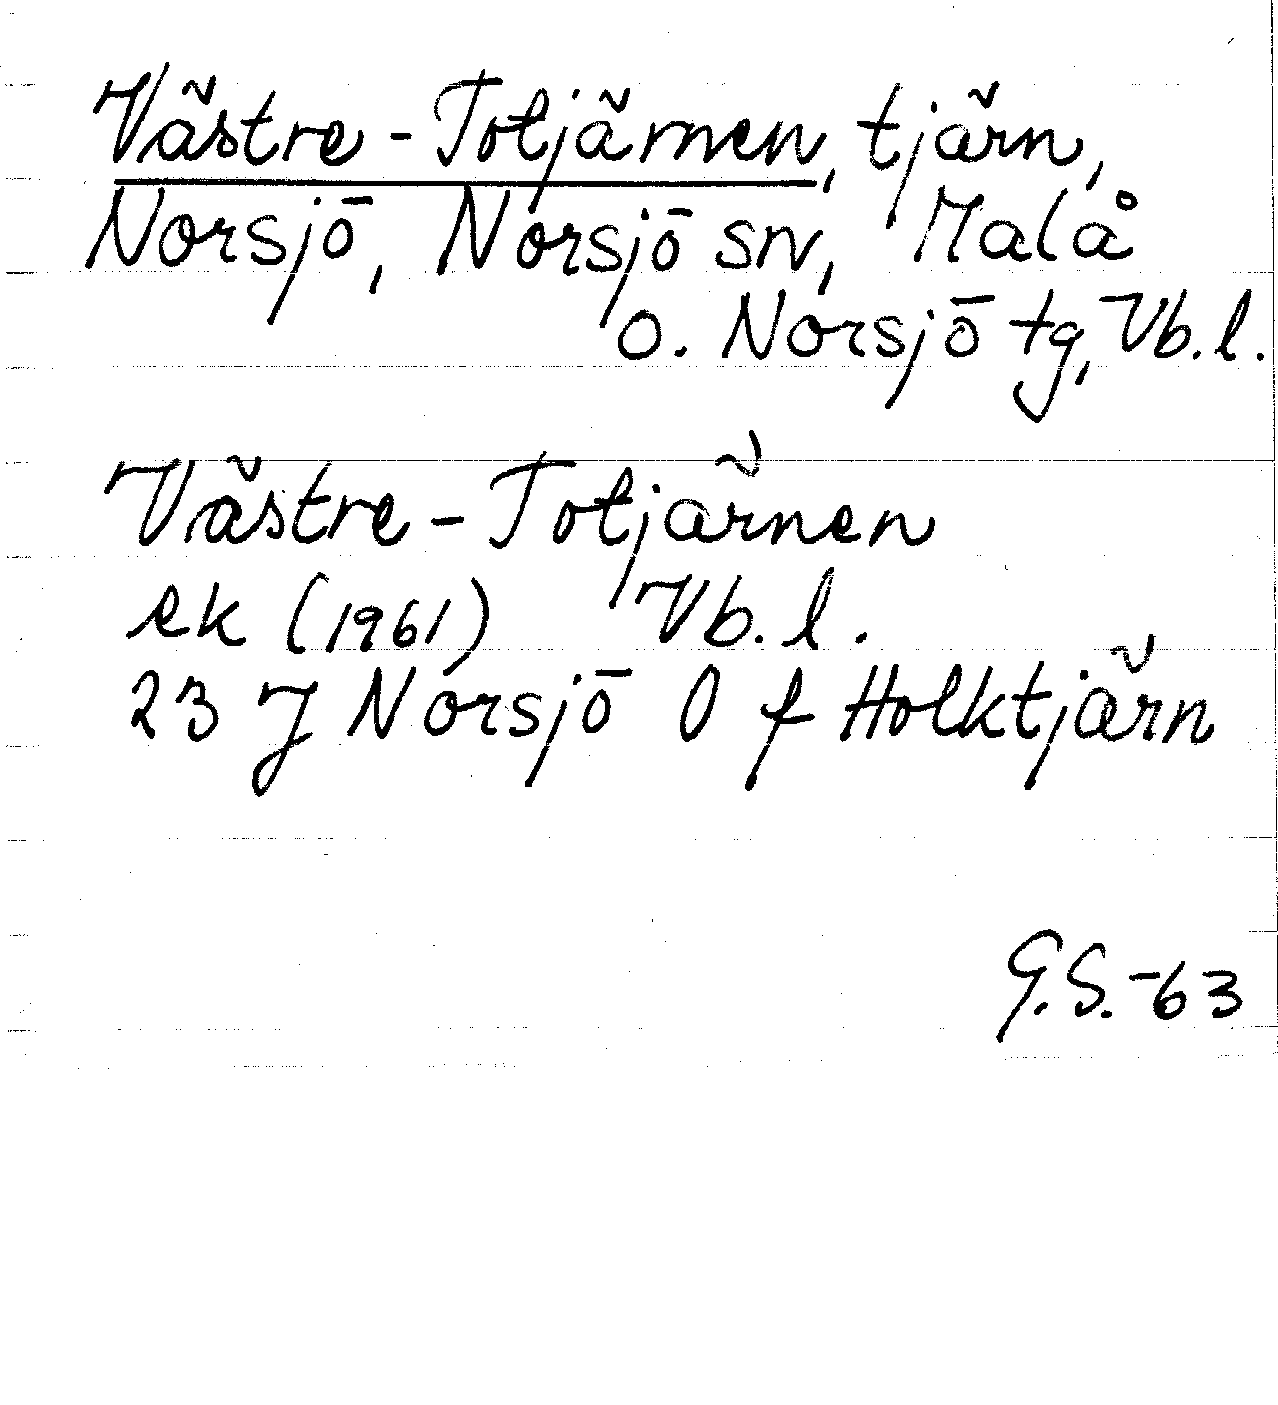 Västre-Totjärnen, tjärn,
Norsjö, Norsjö sn, Malå
o. Norsjö tg, Vb. l.
Västre-Totjärnen
ek (1961) Vb. l.
23 J Norsjö O f Holktjärn
G.S.-63